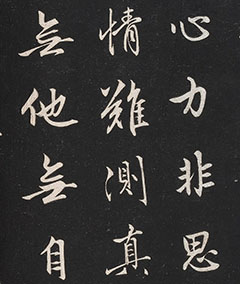 心力非思
情難測真
無他無自